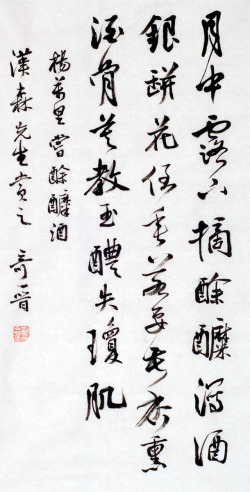 月中露下摘酴醾瀉酒
銀缾花垂若要香熏
酒骨莫教玉醴失瓊肌
楊萬里嘗酴醾酒
漢森先生賞之 奇晋